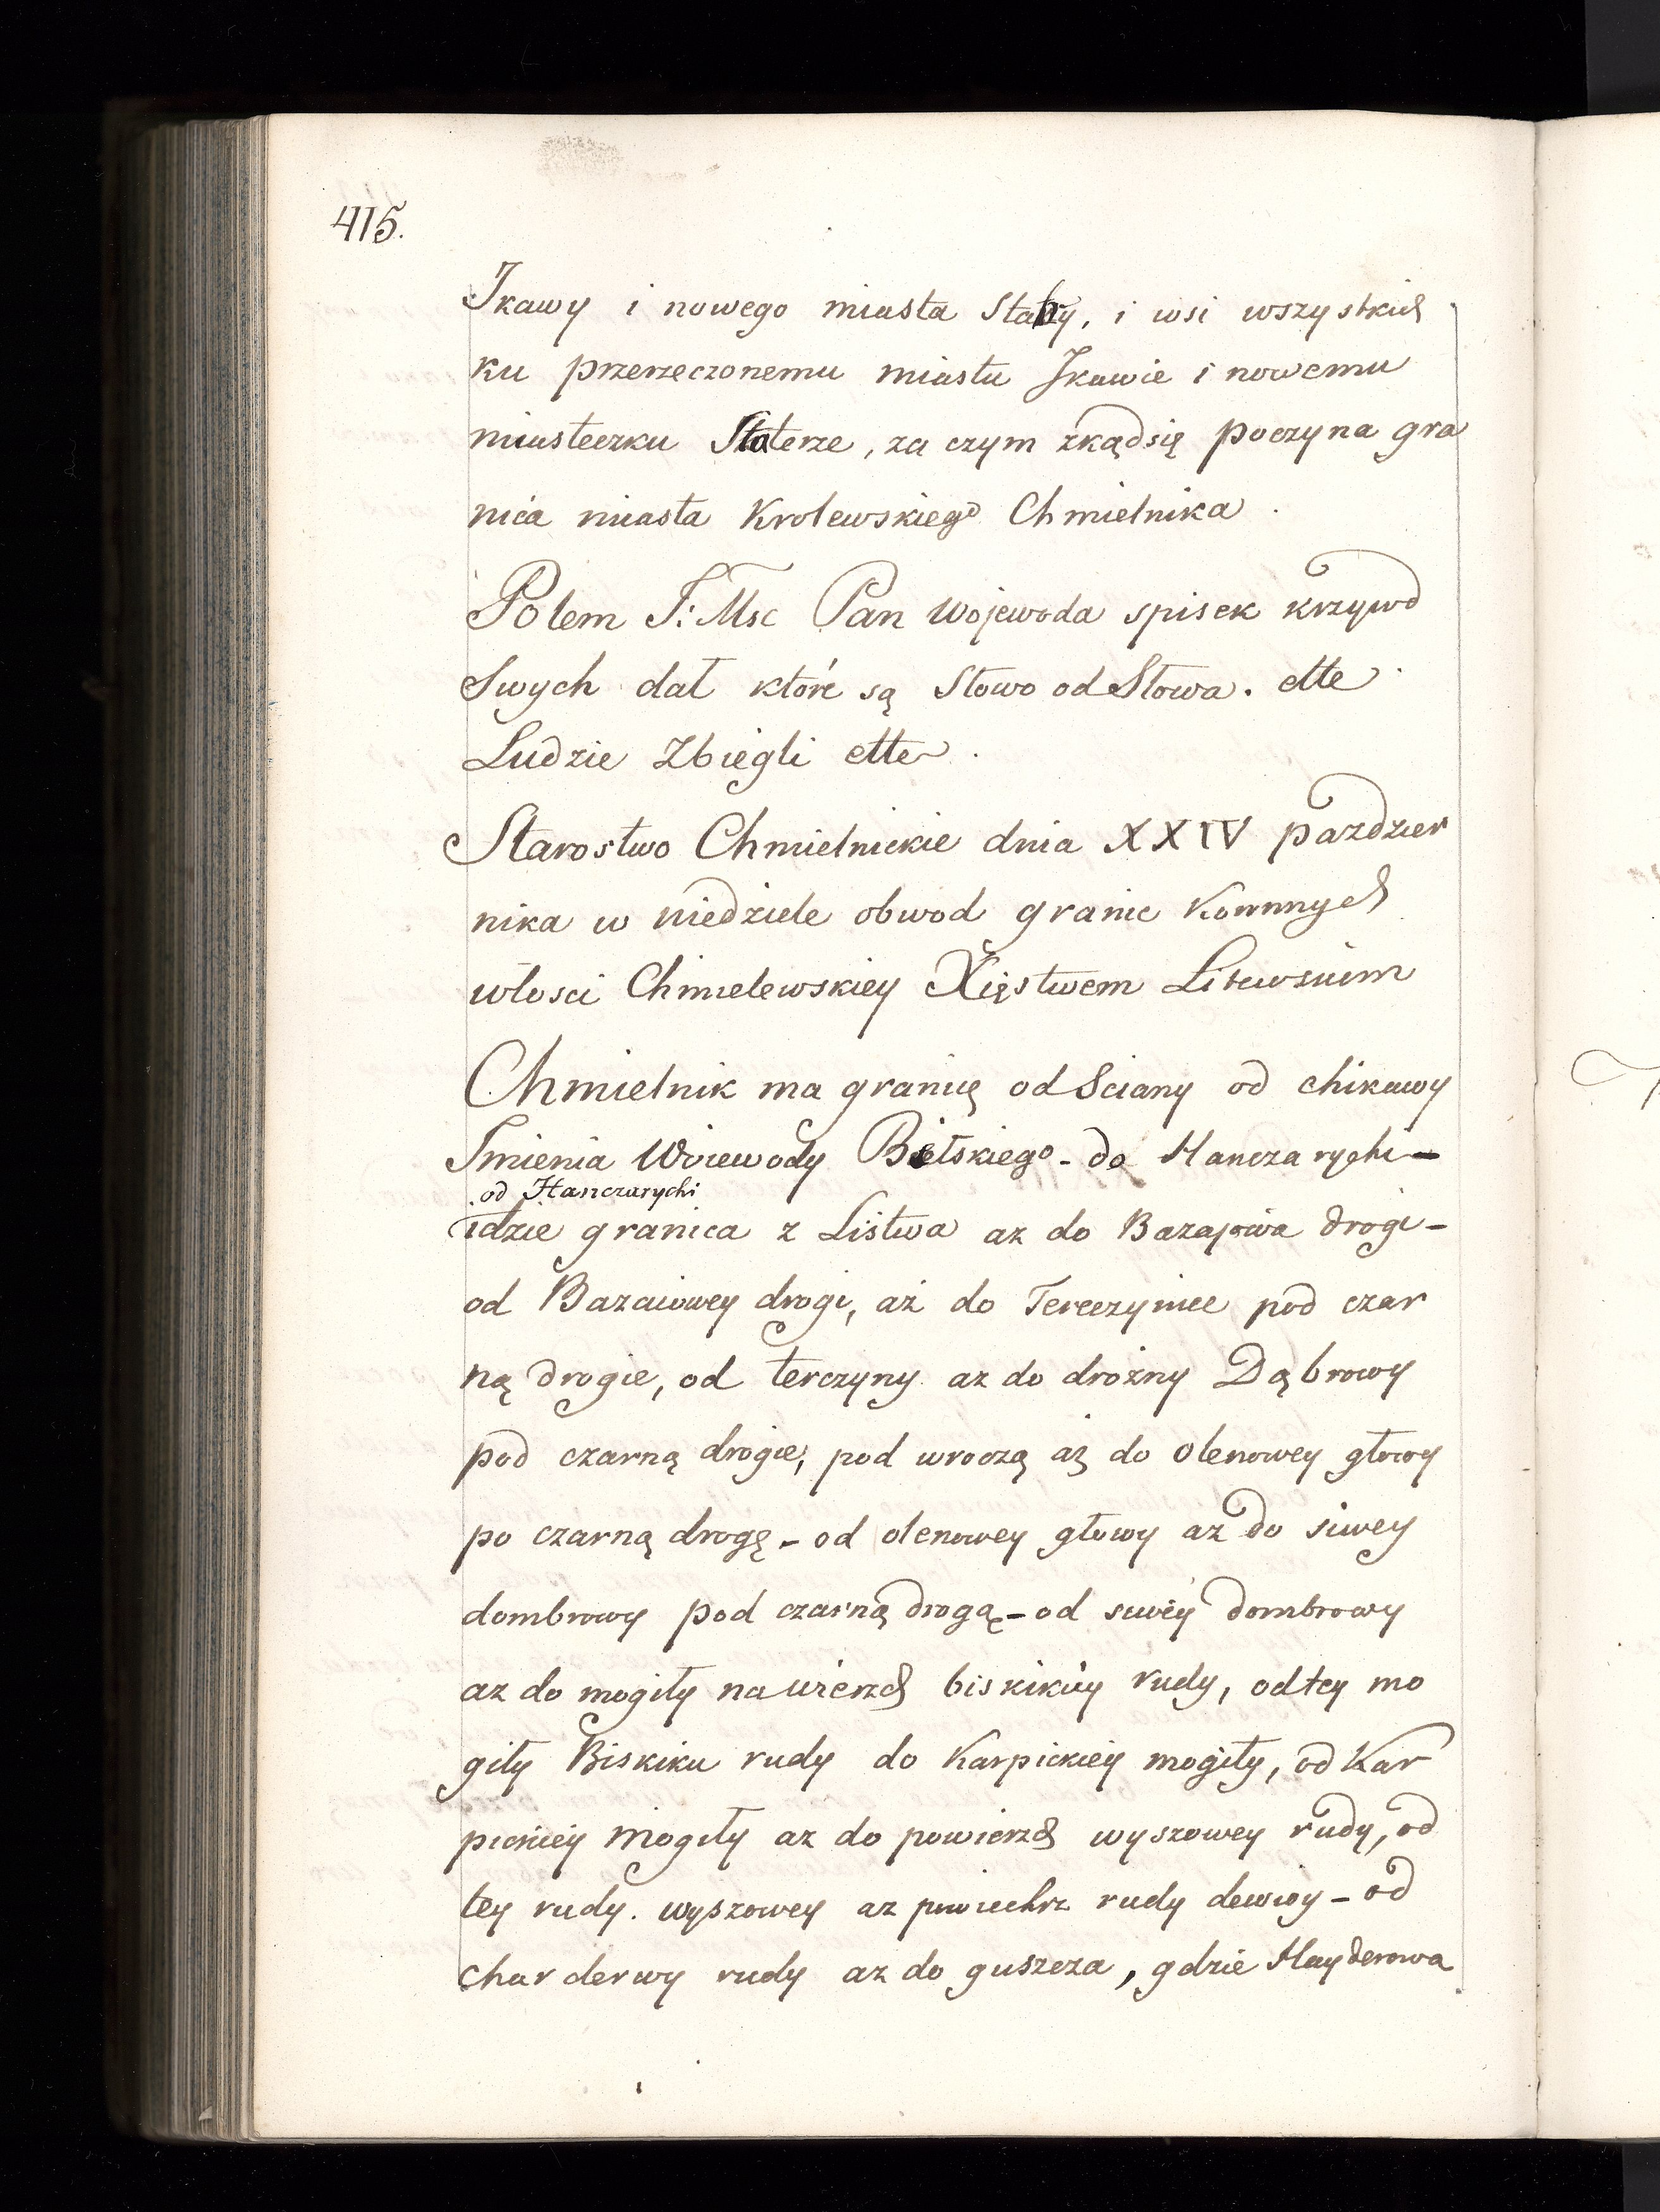 415.
Ikawy i nowego miasta Statry, i wsi wszystkich
ku przerzeczonemu miastu Ikawie i nowemu
miasteczku Staterze, za czym zkądsię poczyna gra
nica miasta Krolewskiego Chmielnika.
Potem J: Msc Pan Wojewoda spisek krzywd
Swych dał które są Słowo od Słowa. ette
Ludzie Zbiegli ette.
Starostwo Chmielnickie dnia XXIV pazdzier
nika w niedziele obwod granic
włosci Chmielewskiey Xięstwem Litewskim
Chmielnik ma granicę od Sciany od chikawy
Imienia Woiewody Bielskiego - do Hanczarychi -
od Hanczarychi
idzie granica z Listwa az do Bazajowa drogi -
od Bazaiowey drogi, aż do Terczynice pod czar
ną drogie, od terczyny az do drożny Dąbrowy
pod czarną drogie, pod wroczą aż do Olenowey głowy
po czarną drogę - od olenowey głowy az do siwey
dombrowy pod czarną drogą - od siwéy dombrowy
az do mogiły na wierzch biskikiiy rudy, od tey mo
giły Biskiku rudy do Karpickiéy mogiły, od Kar
pickiéy mogiły az do powierzch wyszowey rudy, od
tey rudy. wyszowey az powiechrz rudy dewioy - od
char derwy rudy az do guszcza, gdzie Hayderowa